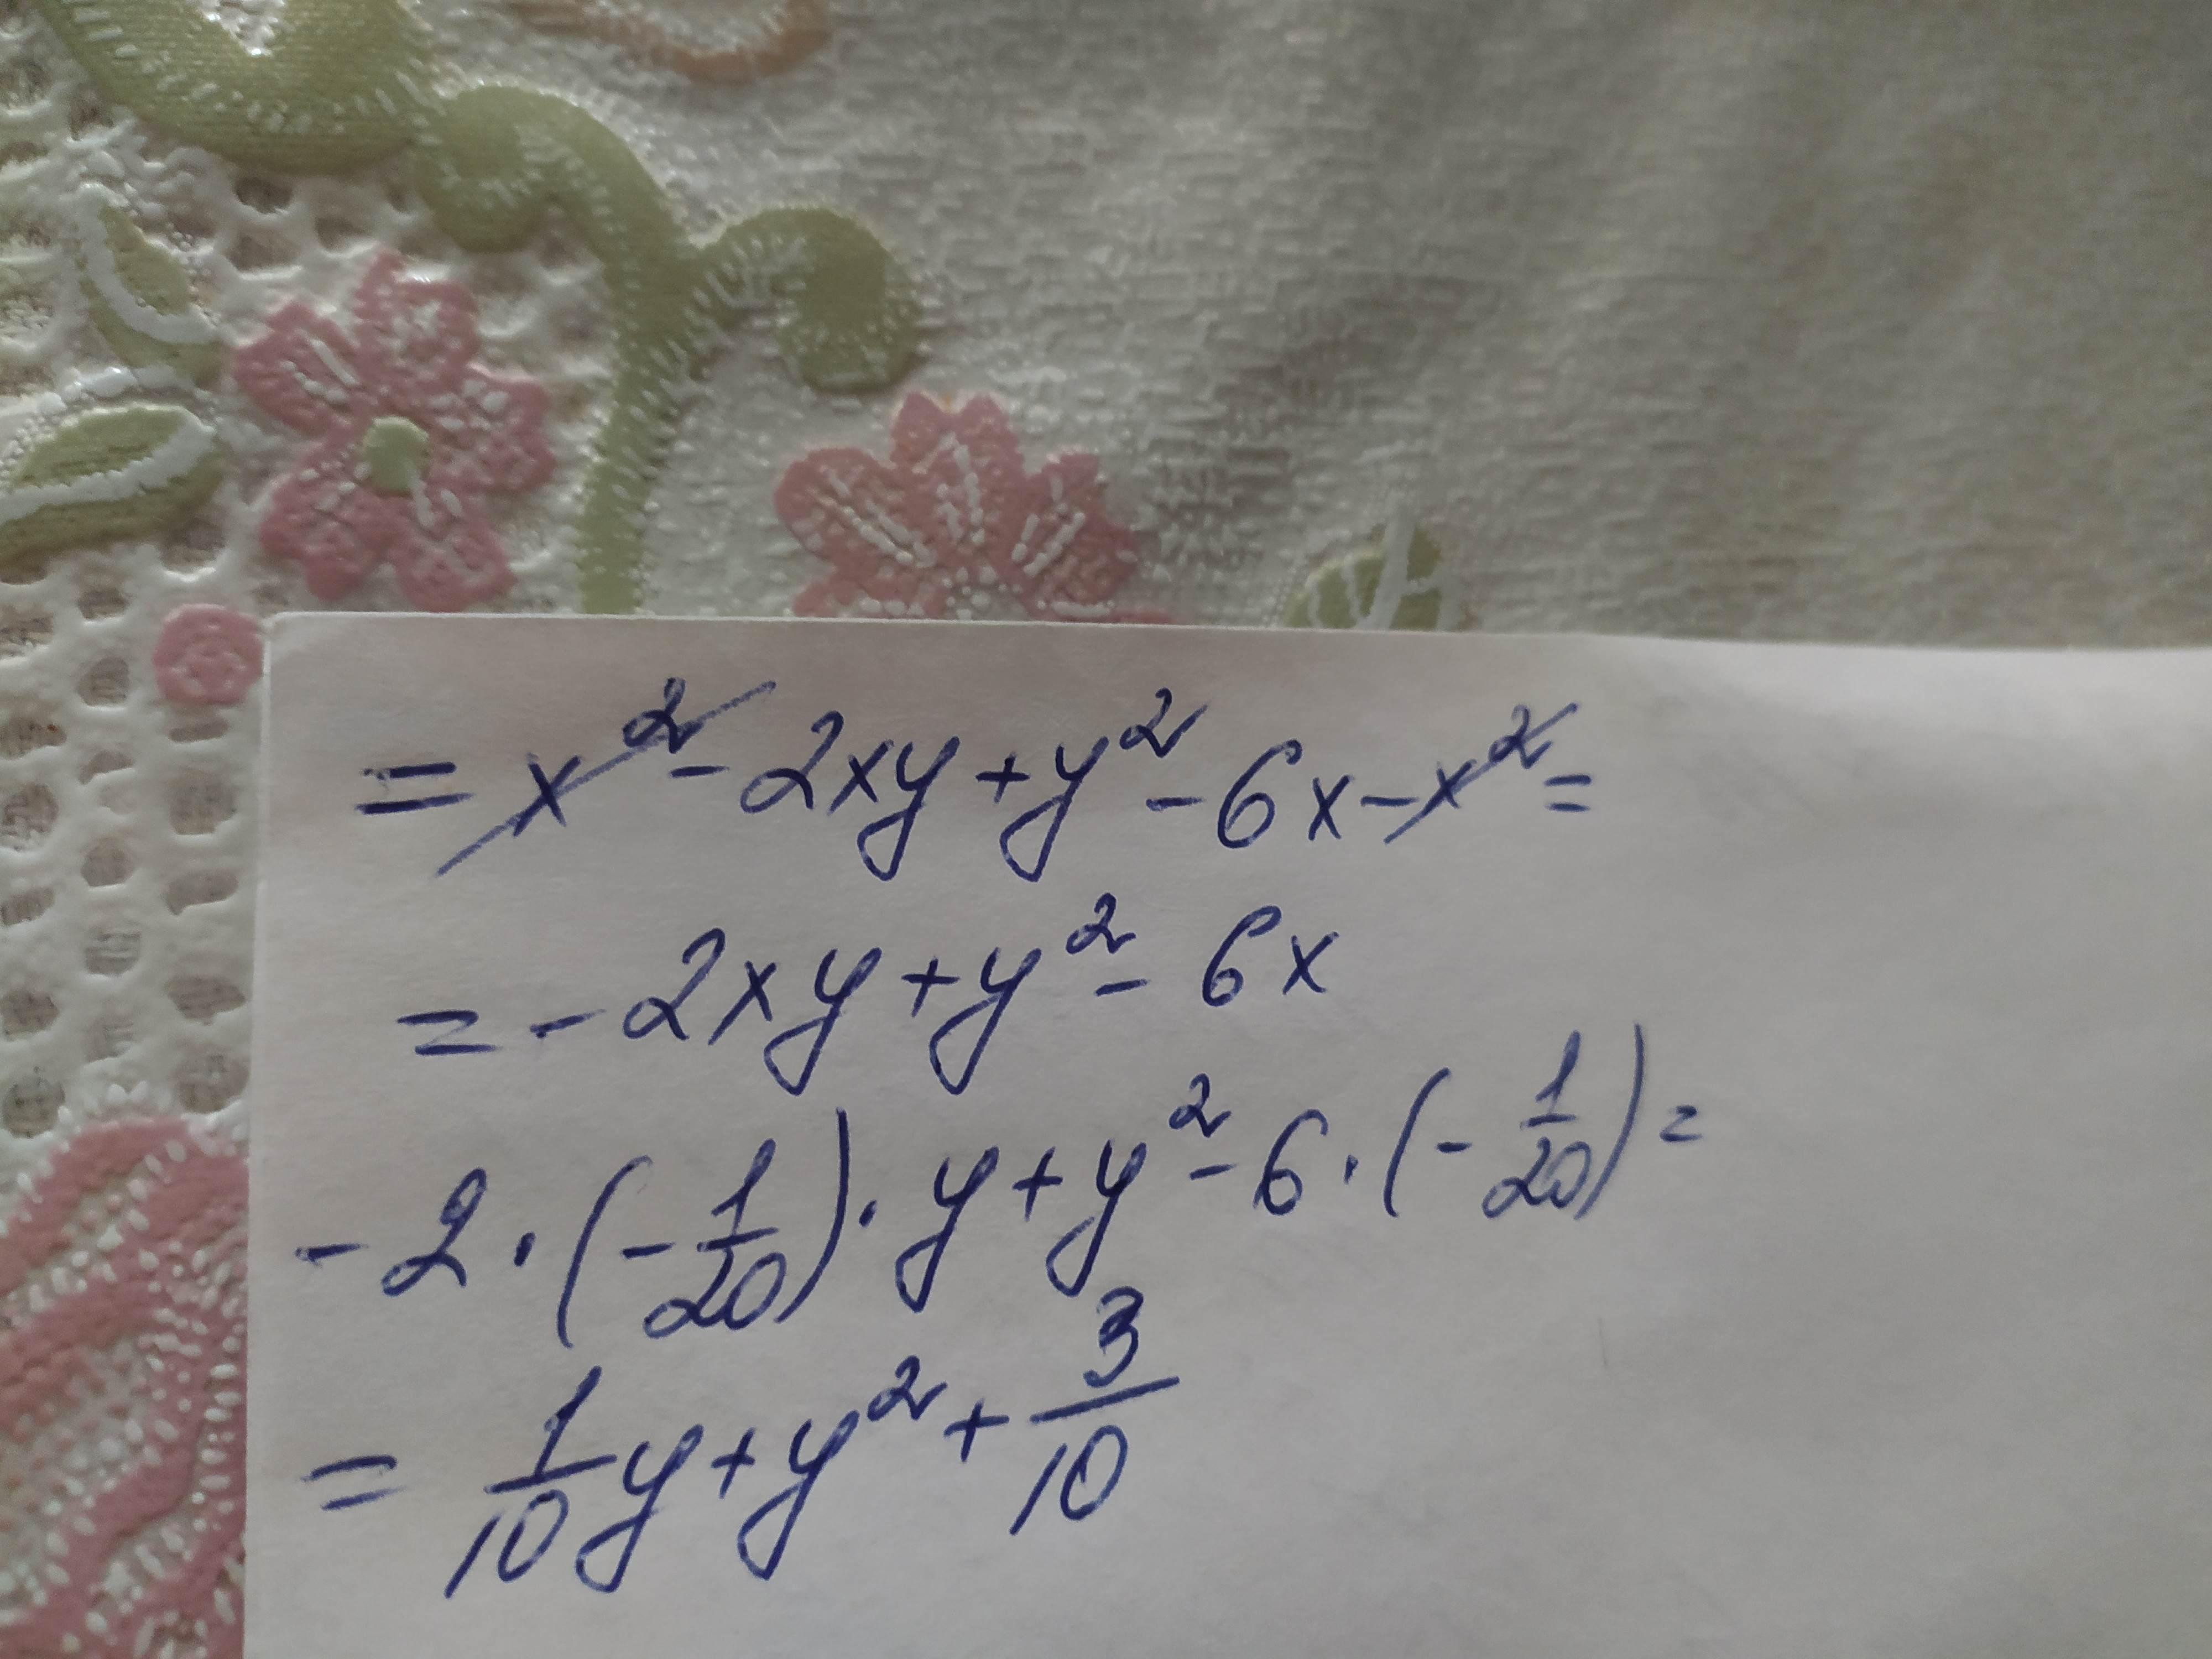 = x² - 2xy + y² - 6x - x² =
= - 2xy + y² - 6x
- 2 · (- 1/20) · y + y² - 6 · (- 1/20) =
= 1/10 y + y² + 3/10